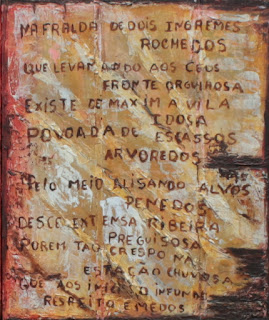 NA FRALDA DE DOIS INGREMES
ROCHEDOS
QUE LEVANTANDO AOS CEUS
FRONTE ORGULHOSA
EXISTE DE MAXIMA VILA
IDOSA
POVOADA DE ESCASSOS
ARVOREDOS
PELO MEIO ALISANDO ALVOS
PENEDOS
DESCE LENTENSA RIBEIRA
PREGUISOSA
POREM TAO CRESPO NA
ESTAÇAO CHUVOSA
QUE AOS INFUNDE
RESPEITO E MEDOS